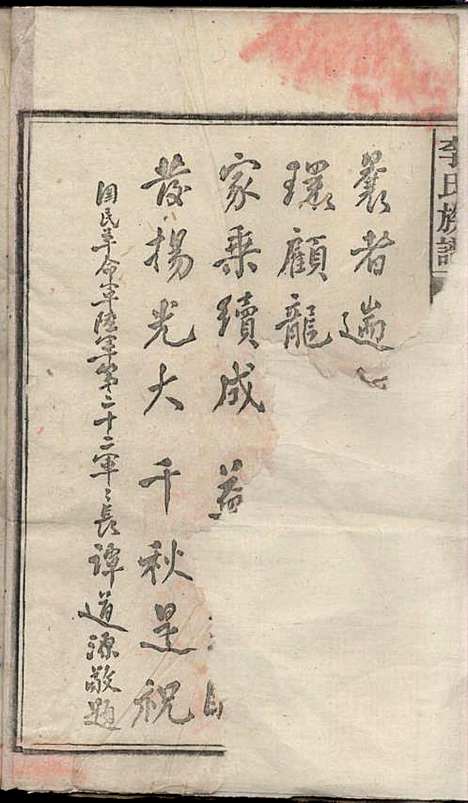 李氏族譜
曩者過
環顧龍
家乘續成 益
發揚光大 千秋是祝
国民革命軍陸軍第二十二軍〻長譚道源敬題